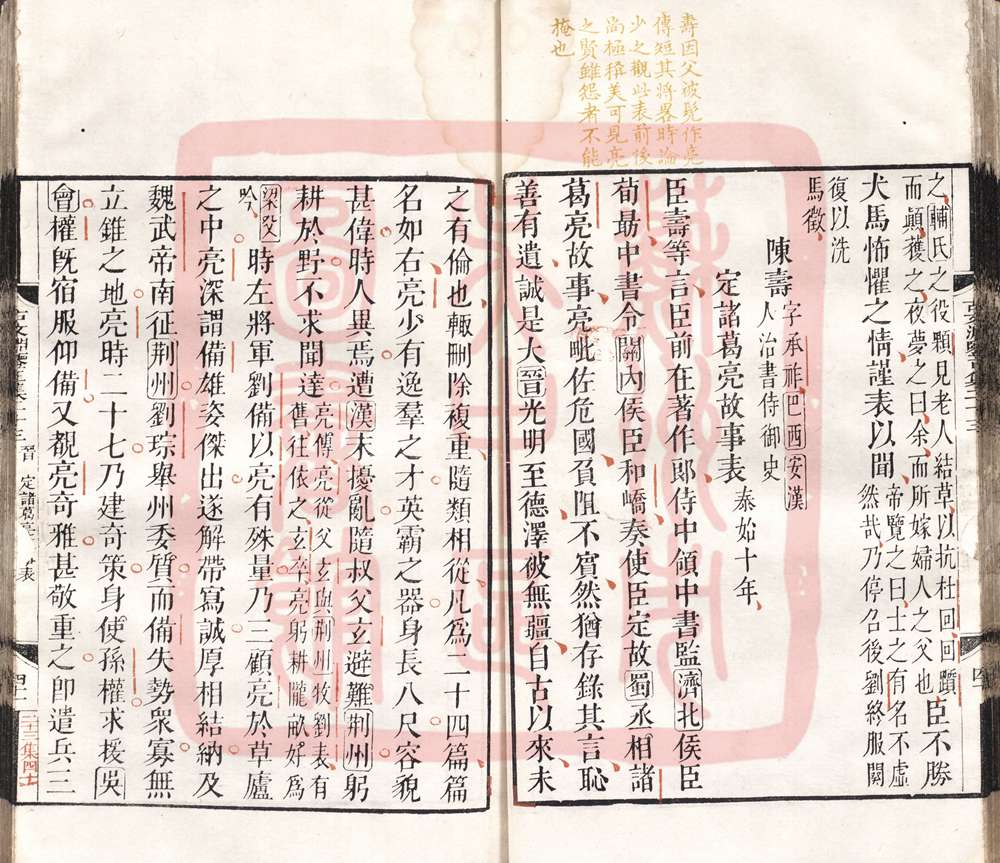 壽因父被髡作亮
傳短其將畧時論
少之觀此表前後
尚極稱美可見亮
之賢雖怨者不能
掩也
之輔氏之役顆見老人結草以抗杜回回躓
而顛獲之夜夢之曰余而所嫁婦人之父也
臣不勝
犬馬怖懼之情謹表以聞
帝覽之曰士之有名不虛
然哉乃停名後劉終服闋
復以洗
馬徵
陳壽
字承祚巴西安漢
人治書侍御史
定諸葛亮故事表 泰始十年
臣壽等言臣前在著作郎侍中領中書監濟北侯臣
荀勗中書令關內侯臣和嶠奏使臣定故蜀丞相諸
葛亮故事亮毗佐危國負阻不賓然猶存錄其言恥
善有遺誠是大晉光明至德澤被無疆自古以來未
之有倫也輒刪除複重隨類相從凡爲二十四篇篇
名如右亮少有逸羣之才英霸之器身長八尺容貌
甚偉時人異焉遭漢末擾亂隨叔父玄避難荆州躬
耕於野不求聞達
亮傳亮從父玄與荆州牧劉表有
舊往依之玄卒亮躬耕隴畝好爲
梁父
吟
時左將軍劉備以亮有殊量乃三顧亮於草廬
之中亮深謂備雄姿傑出遂解帶寫誠厚相結納及
魏武帝南征荆州劉琮舉州委質而備失勢衆寡無
立錐之地亮時二十七乃建奇策身使孫權求援吳
會權旣宿服仰備又覩亮奇雅甚敬重之卽遣兵三
晉
定諸葛亮
表